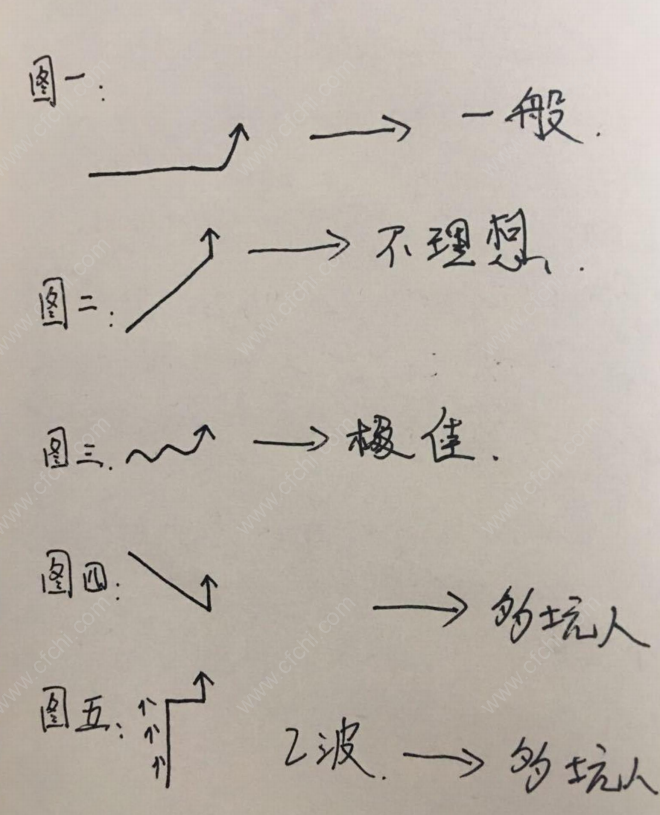 图一: 一般.
图二: 不理想.
图三. 极佳.
图四: 多坑人
图五: 乙波. 多坑人
www.cfchi.com